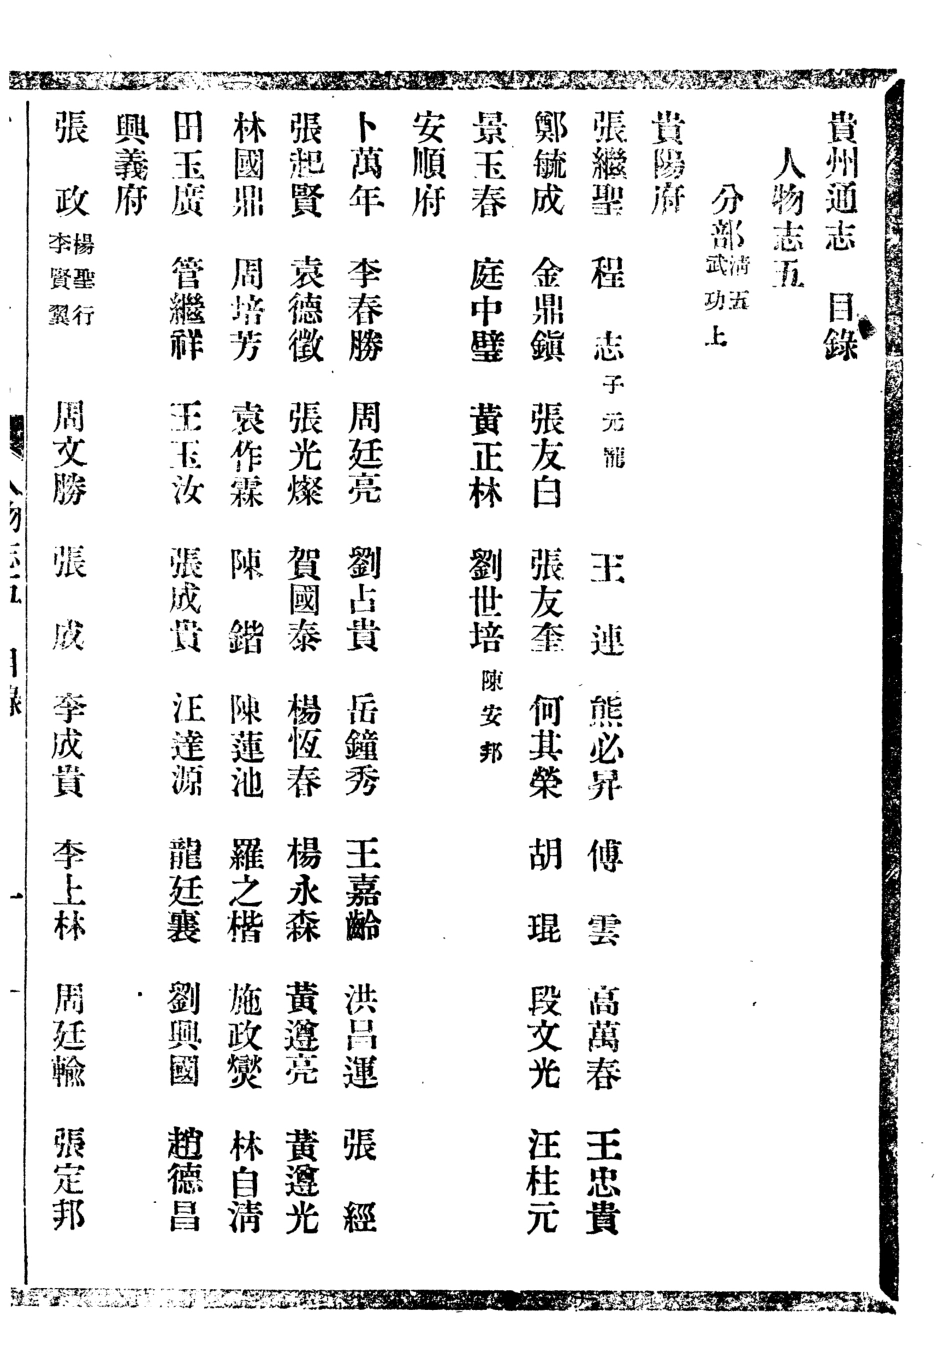 貴州通志　目錄
人物志五
分部清五武功上
貴陽府
張繼聖　程　志子元龍　王　連　熊必昇　傅　雲　高萬春　王忠貴
鄭毓成　金鼎鎭　張友白　張友奎　何其榮　胡　琨　段文光　汪柱元
景玉春　庭中璧　黃正林　劉世培陳安邦
安順府
卜萬年　李春勝　周廷亮　劉占貴　岳鐘秀　王嘉齡　洪昌運　張　經
張起賢　袁德徵　張光燦　賀國泰　楊恆春　楊永森　黃遵亮　黃遵光
林國鼎　周培芳　袁作霖　陳　鍇　陳蓮池　羅之楷　施政爕　林自清
田玉廣　管繼祥　王玉汝　張成貴　汪達源　龍廷襄　劉興國　趙德昌
興義府
張　政楊聖行李賢翼　周文勝　張　成　李成貴　李上林　周廷輸　張定邦